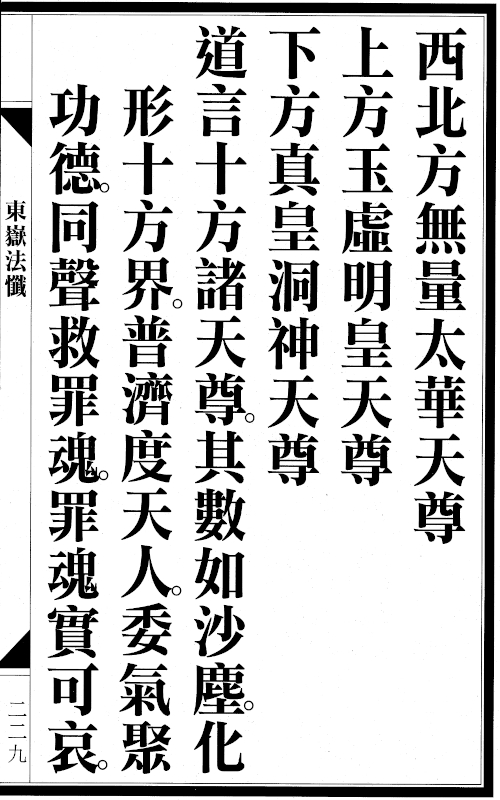 西北方無量太華天尊
上方玉虛明皇天尊
下方真皇洞神天尊
道言十方諸天尊。其數如沙塵。化
形十方界。普濟度天人。委氣聚
功德。同聲救罪魂。罪魂實可哀。
東嶽法懺
二二九